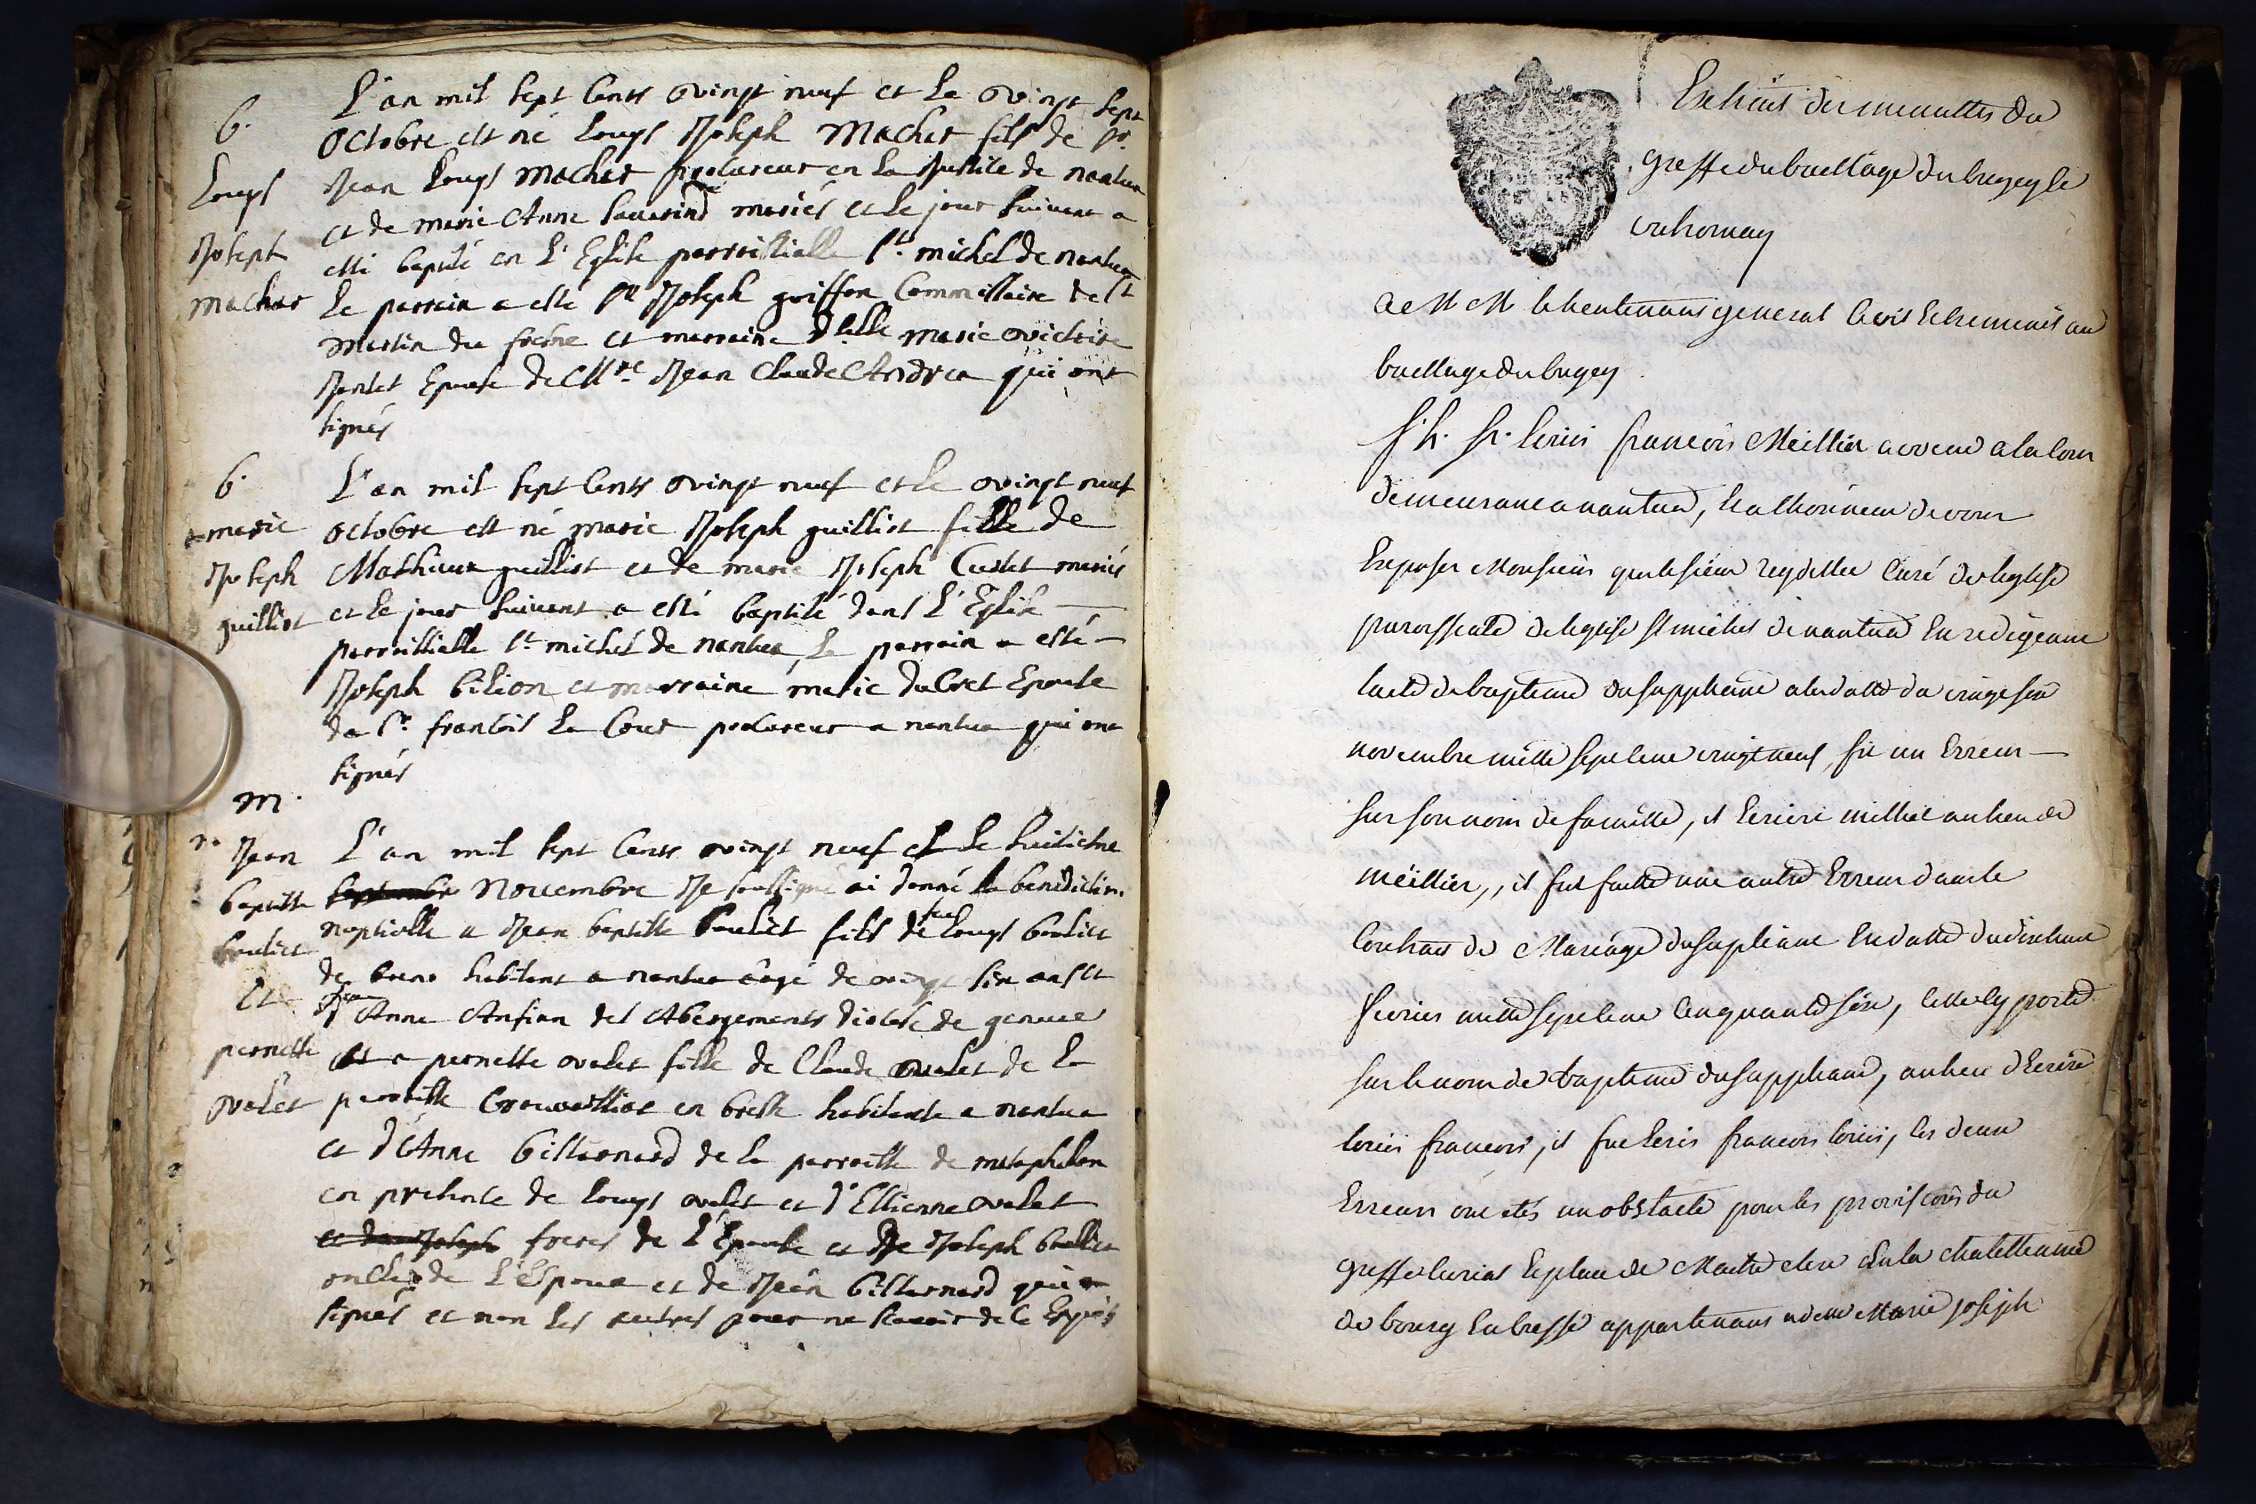 6.
Louys
Joseph
machet
L'an mil sept cents vingt neuf et le vingt sept
octobre est né Louys Joseph Machet fils de Sr.
Jean Louys Machet procureur en la Justice de nantua
et de marie Anne mariés et le jour suivant a
esté baptisé en L'Eglise parroissialle St. michel de nantua
Le parrain a esté Sr Joseph goiffon Commissaire de St
martin du frêne et marraine Delle marie victoire
Jantet Epouse de Mre. Jean Claude Andrea qui ont
signés
6.
marie
Joseph
guilliot
L'an mil sept cents vingt neuf et le vingt neuf
octobre est né marie Joseph guilliot fille de
Mathieux guilliot et de marie Joseph mariés
et le jour suivant a esté baptisé dans L'Eglise
parroissialle St. michel de nantua, Le parrain a esté
Joseph bilion et marraine marie ducret Epouse
de Sr. francois La Cour procureur a nantua qui ont
signés
m.
Jean
baptiste
boulier
et
pernette
valet
L'an mil sept cents vingt neuf et le huitiême
septembre novembre Je soussigné ai donné la benediction
noptialle a Jean baptiste boulier fils de feu Louys boulier
de habitant a nantua âgé de vingt six ans et
d'Anne Anfian des Abergements diocese de geneve
et a pernette valet fille de Claude valet de la
parroisse en bresse habitante a nantua
et d'Anne billarnard de la parroisse de mataphelon
en presence de Louys valet et d'Ettienne valet
et de Joseph freres de L'Epouse et de Joseph boullier
oncle de L'Espoux et de Jean billarnard qui
signés et non les autres pour ne scavoir de ce Enquis
Extrait des minuttes du
greffe du bailliage du bugey
A M M le lieutenant general civil et criminel au
bailliage du bugey
S. h. Sr. Louis francois Meillier avocat a la cour
demeurant a nantua, et a l'honneur de vous
Exposer Monsieur que le sieur Reydellet Curé de leglise
paroissiale de leglise St michel de nantua En redigeant
lacte de baptême du suppliant a la datte du vingt six
novembre mille sept cent vingt neuf, fit un Erreur
sur son nom de famille, il écrivit milliet au lieu de
meillier,, il fut faitte une autre Erreur dans le
Contrat de Mariage du supliant En datte du dix huit
fevrier mille sept cent cinquante six, celle cy porte
sur le nom de baptême du suppliant, au lieu d'Ecrire
louis francois, il fut Ecris francois louis, ces deux
Erreurs ont etés un obstacle pour les provisions du
greffe Ecrivas Explace de Maitre clerc de la chatellenie
de bourg En bresse appartenant a delle Marie joseph